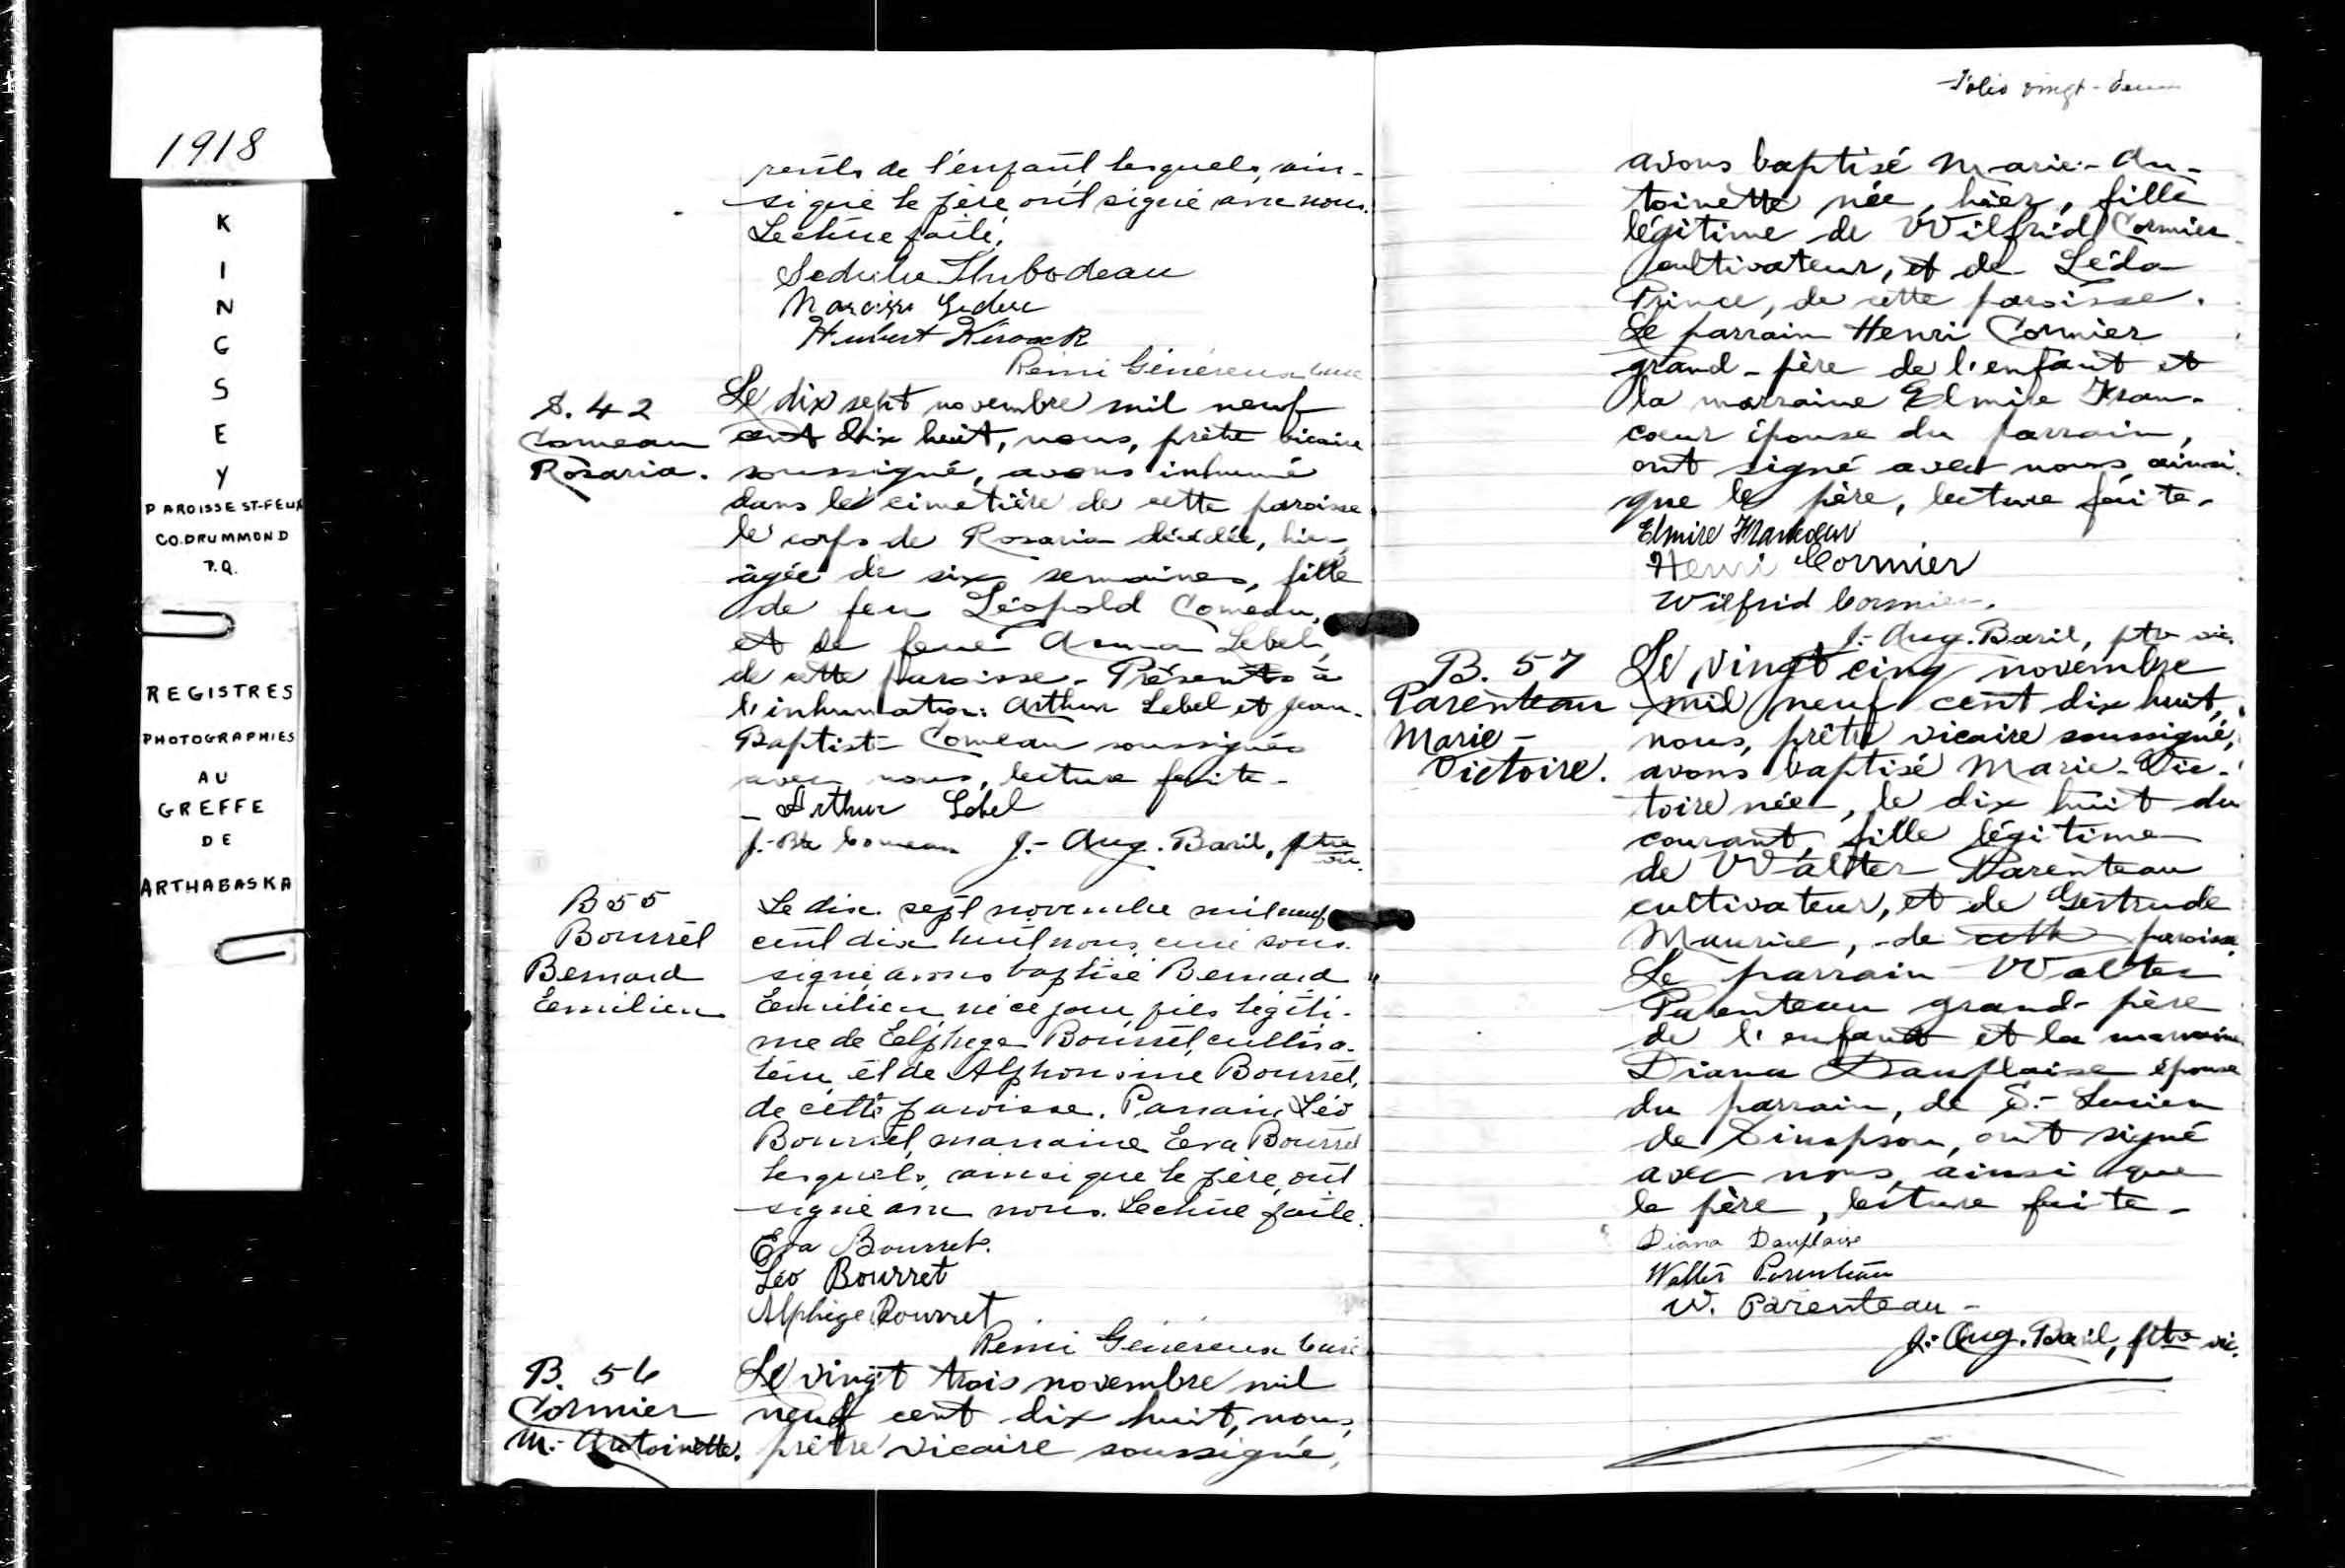 1918
K
I
N
G
S
E
Y
PAROISSE ST-FELIX
CO. DRUMMOND
P.Q.
REGISTRES
PHOTOGRAPHIES
AU
GREFFE
DE
ARTHABASKA
rents de l'enfant, lesquels, ain-
si que le père ont signé avec nous.
Lecture faite.
Thibodeau
Narcisse Leduc
Hubert Kirouack
Rémi Généreux curé
S. 42
Comeau
Rosaria.
Le dix sept novembre mil neuf
cent dix huit, nous, prêtre vicaire
soussigné, avons inhumé
dans le cimetière de cette paroisse
le corps de Rosaria décédée, hier,
âgée de six semaines, fille
de feu Léopold Comeau,
et de feue Anna Lebel,
de cette paroisse. Présents à
l'inhumation: Arthur Lebel et Jean-
Baptiste Comeau soussignés
avec nous, lecture faite-
- Arthur Lebel
J.-Bte Comeau J.-Aug. Baril, ptre
vic.
B 55
Bourret
Bernard
Eemilien
Le dix sept novembre mil neuf
cent dix huit nous, curé sous-
signé, avons baptisé Bernard
Eemilien, né ce jour, fils légiti-
me de Eelphege Bourret, cultiva-
teur, et de Alphonsine Bourret,
de cette paroisse. Parrain, Léo
Bourret, marraine Eeva Bourret
lesquels, ainsi que le père, ont
signé avec nous. Lecture faite.
Eva Bourret.
Léo Bourret
Alphège Bourret
Rémi Généreux curé
B. 56
Cormier
M.-Antoinette.
Le vingt trois novembre mil
neuf cent dix huit, nous,
prêtre vicaire soussigné,
Folio vingt-deux
avons baptisé Marie-An-
toinette née, hier, fille
légitime de Wilfrid Cormier
cultivateur, et de Léda
Prince, de cette paroisse.
Le parrain Henri Cormier
grand-père de l'enfant et
la marraine Elmire Fran-
coeur épouse du parrain,
ont signé avec nous, ainsi
que le père, lecture faite-
Elmire Francoeur
Henri Cormier
Wilfrid Cormier.
J.-Aug. Baril, ptre vic.
B. 57
Parenteau
Marie-
Victoire.
Le vingt cinq novembre
mil neuf cent dix huit,
nous, prêtre vicaire soussigné,
avons baptisé Marie-Vic-
toire née, le dix huit du
courant, fille légitime
de Walter Parenteau
cultivateur, et de Gertrude
Maurice, de cette paroisse.
Le parrain Walter
Parenteau grand-père
de l'enfant et la marraine
Diana Dauplaise épouse
du parrain, de S.-Lucien
de Simpson, ont signé
avec nous, ainsi que
le père, lecture faite-
Diana Dauplaise
Walter Parenteau
W. Parenteau-
J.-Aug. Baril, ptre vic.